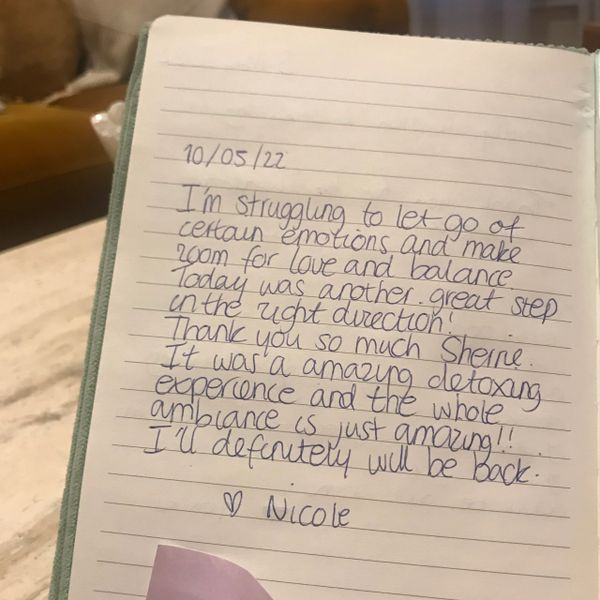 10/05/22
I'm struggling to let go of
certain emotions and make
room for love and balance.
Today was another great step
in the right direction!
Thank you so much Sherine.
It was a amazing detoxing
experience and the whole
ambiance is just amazing!!
I'll definitely will be back.
♡ Nicole